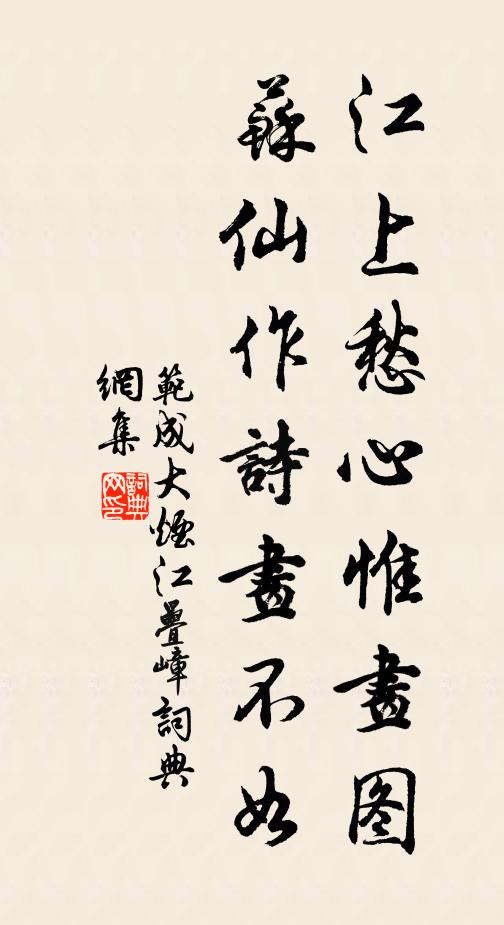 江上愁心惟畫图
蘇仙作詩畫不如
範成大煙江疊嶂詞典
網集
詞典
网印